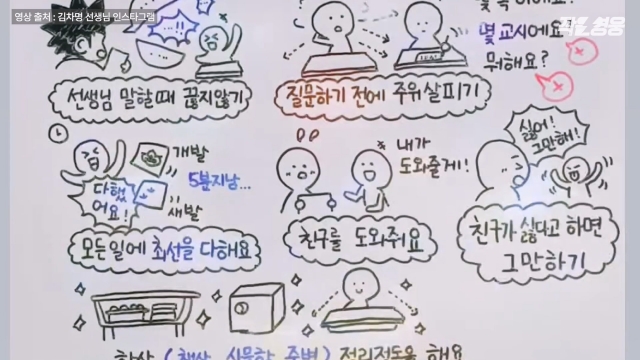 영상 출처 : 김차명 선생님 인스타그램
작은영웅
몇 교시에요?
뭐해요?
선생님 말할 때 끊지않기
질문하기 전에 주위 살피기
싫어!
그만해!
개발
5분지남...
새발
다했
어요!
내가
도와줄게!
모든일에 최선을 다해요
친구를 도와줘요
친구가 싫다고 하면
그만하기
항상 (책상, 사물함, 주변) 정리정돈을 해요